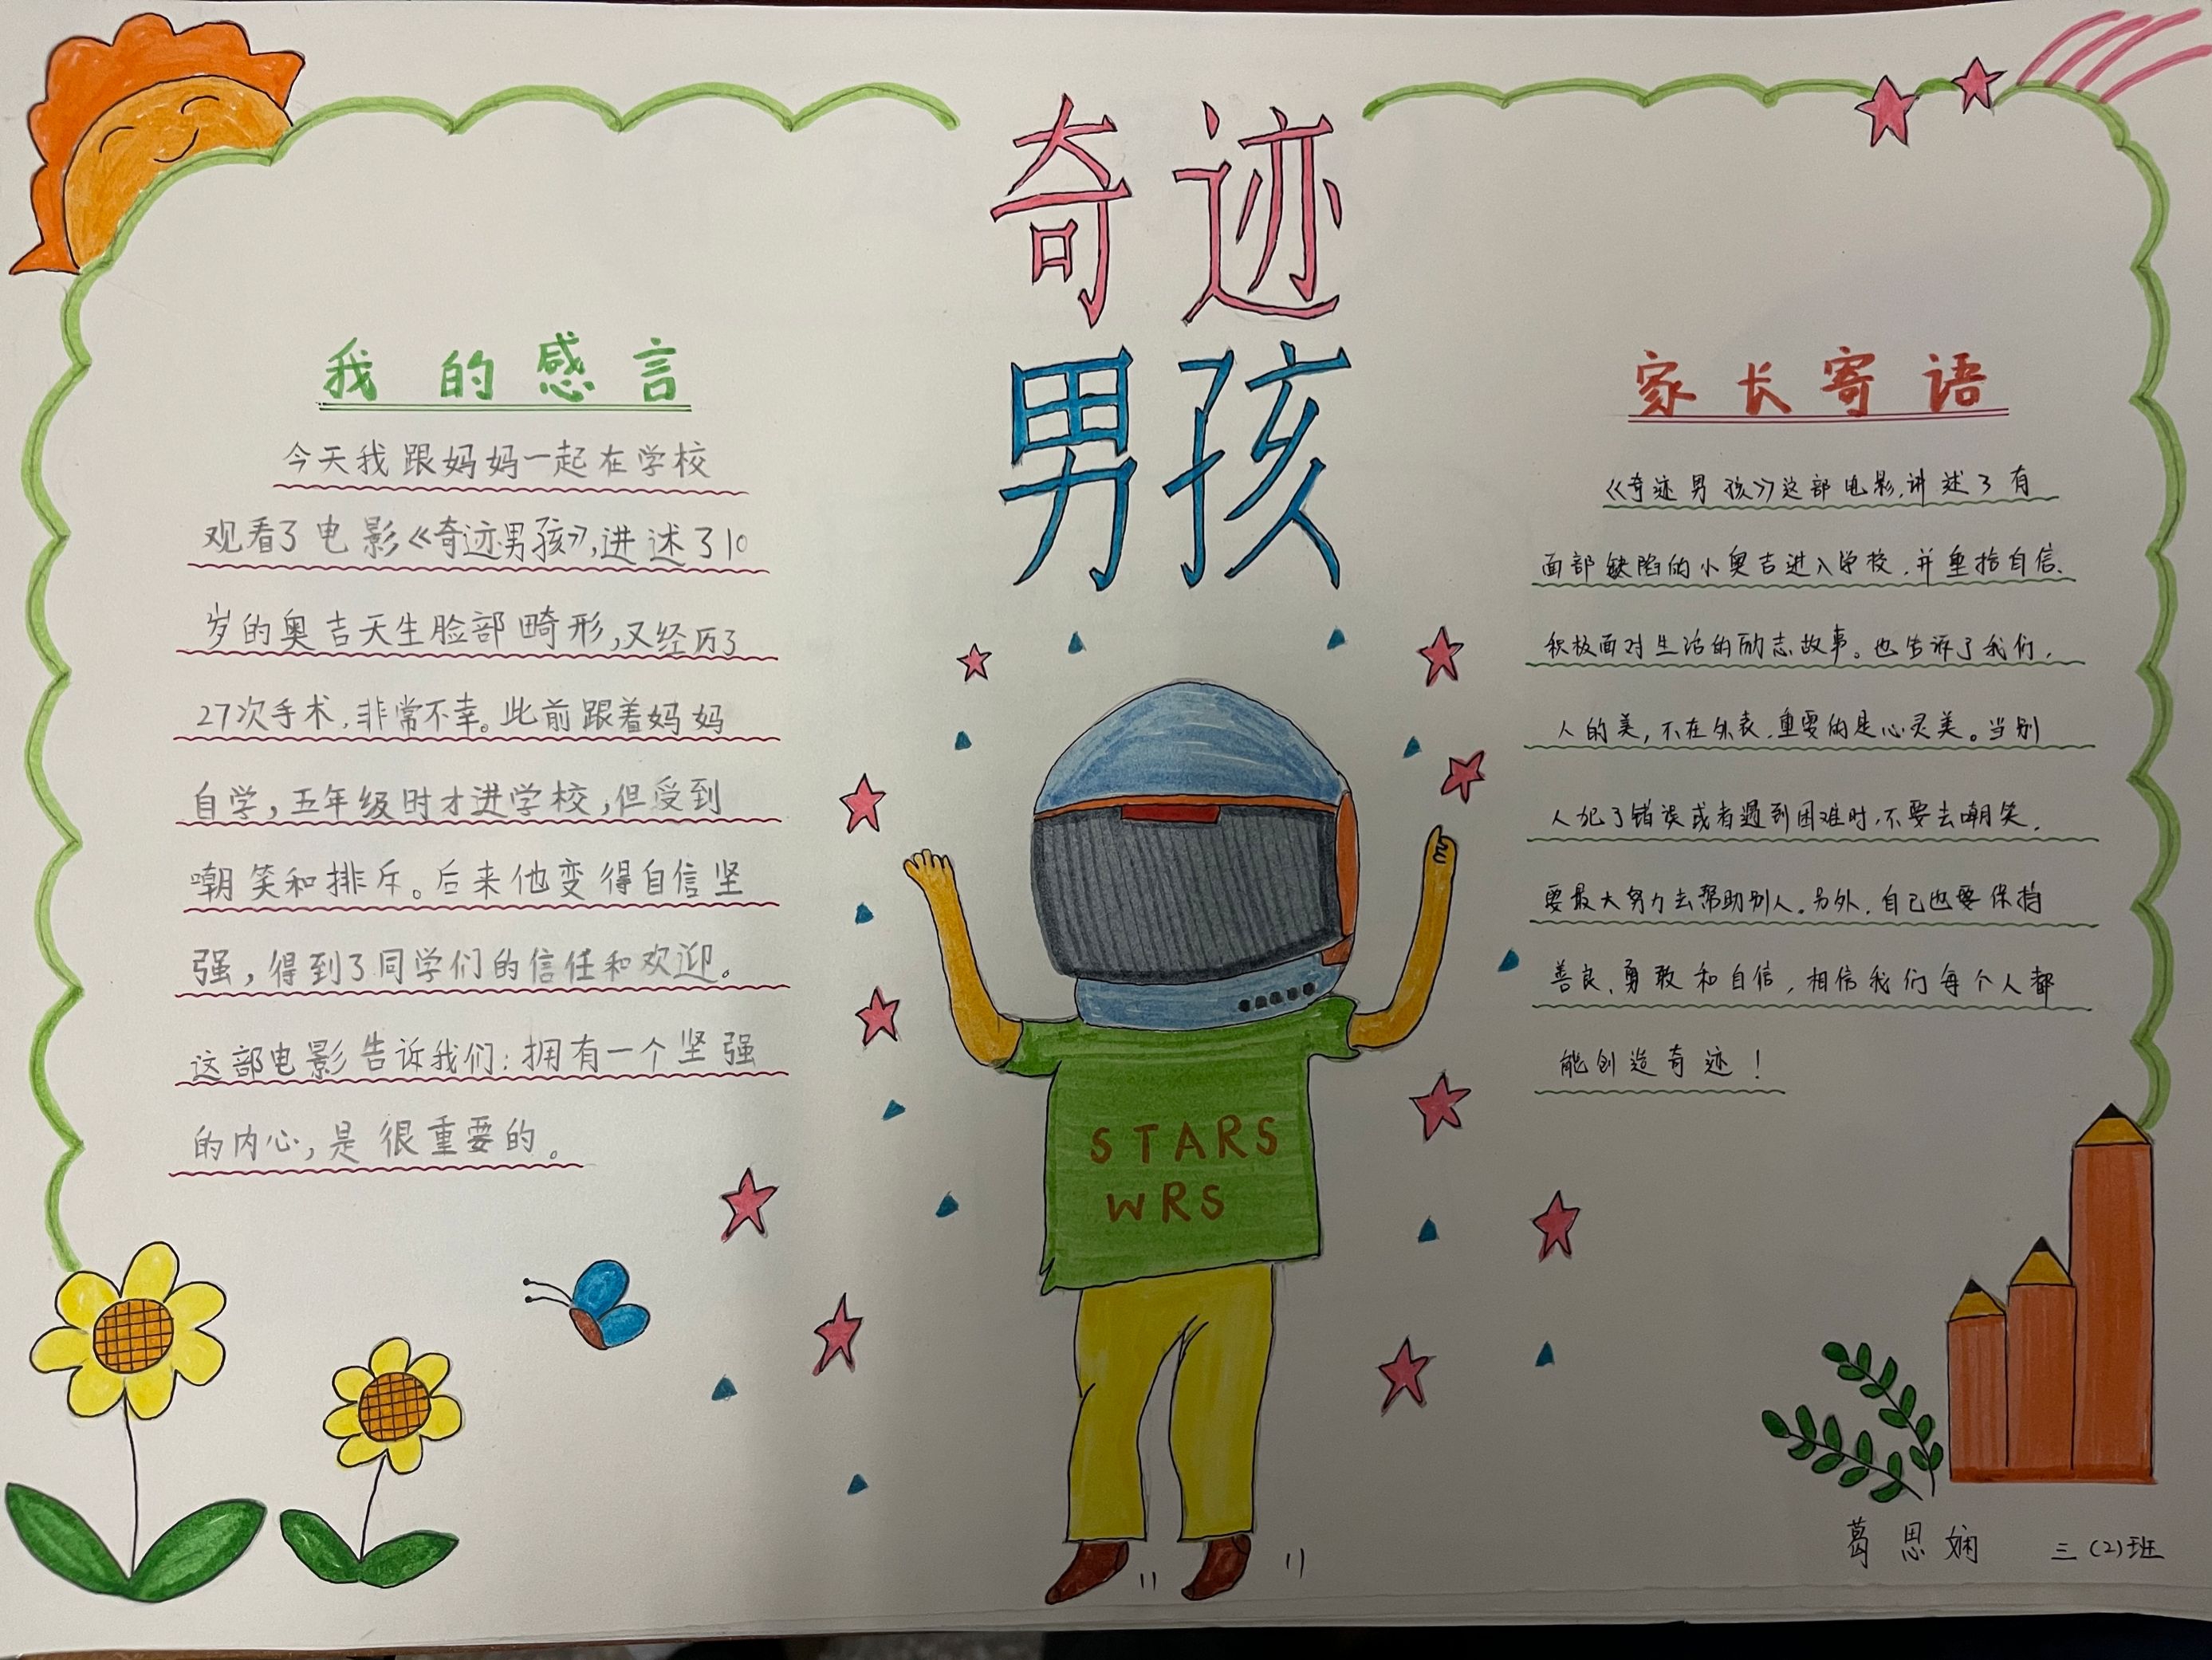 奇迹
男孩
我的感言
今天我跟妈妈一起在学校
观看了电影《奇迹男孩》,进述了10
岁的奥吉天生脸部畸形,又经历了
27次手术,非常不幸。此前跟着妈妈
自学,五年级时才进学校,但受到
嘲笑和排斥。后来他变得自信坚
强,得到了同学们的信任和欢迎。
这部电影告诉我们:拥有一个坚强
的内心,是很重要的。
家长寄语
《奇迹男孩》这部电影,讲述了有
面部缺陷的小奥吉进入学校,并重拾自信、
积极面对生活的励志故事。也告诉了我们,
人的美,不在外表,重要的是心灵美。当别
人犯了错误或者遇到困难时,不要去嘲笑,
要最大努力去帮助别人。另外,自己也要保持
善良、勇敢和自信,相信我们每个人都
能创造奇迹!
STARS
WRS
葛思娴 三(2)班